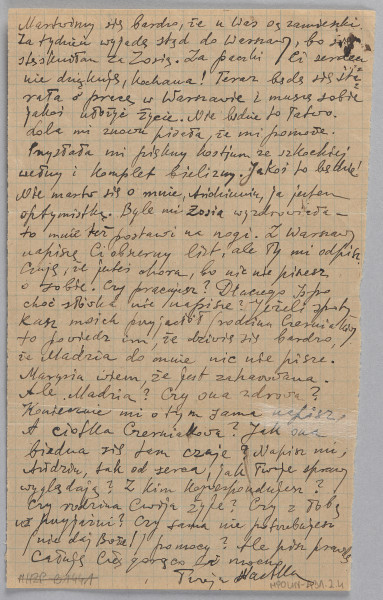 Martwimy się bardzo, że u Was są zamieszki.
Za tydzień wyjadę stąd do Warszawy, bo się
stęskniłam za Zosią. Za paczki Ci serdecz
nie dziękuję, kochana! Teraz będę się sta
rała o pracę w Warszawie i muszę sobie
jakoś ułożyć życie. Nie będzie to łatwo.
dola mi znowu pisała, że mi pomoże.
Przysłała mi piękny kostjum ze szkockiej
wełny i komplet bielizny. Jakoś to będzie!
Nie martw się o mnie, ja jestem
optymistką. Byle mi Zosia wyzdrowiała –
to mnie też postawi na nogi. Z Warszawy
napiszę Ci obszerny list, ale Ty mi odpisz.
Czuję, że jesteś chora, bo nic nie piszesz
o sobie. Czy pracujesz? Dlaczego
choć słówka nie napisze? Jeżeli spoty
kasz moich przyjaciół rodzinę
to powiedz im, że dziwię się bardzo,
że Madzia do mnie nic nie pisze.
Marysia wiem, że jest
Ale Madzia? Czy ona zdrowa?
Koniecznie mi o tym sama napisz.
A ciotka Czerniakowa? Jak ona
biedna się tam czuje? Napisz mi,
tak od serca, jak Twoje sprawy
wyglądają? Z kim korespondujesz?
Czy rodzina żyje? Czy z Tobą
w przyjaźni? Czy sama nie potrzebujesz
(nie daj Boże!) pomocy? Ale pisz prawdę
Całuję Cię gorąco i mocno
Twoja